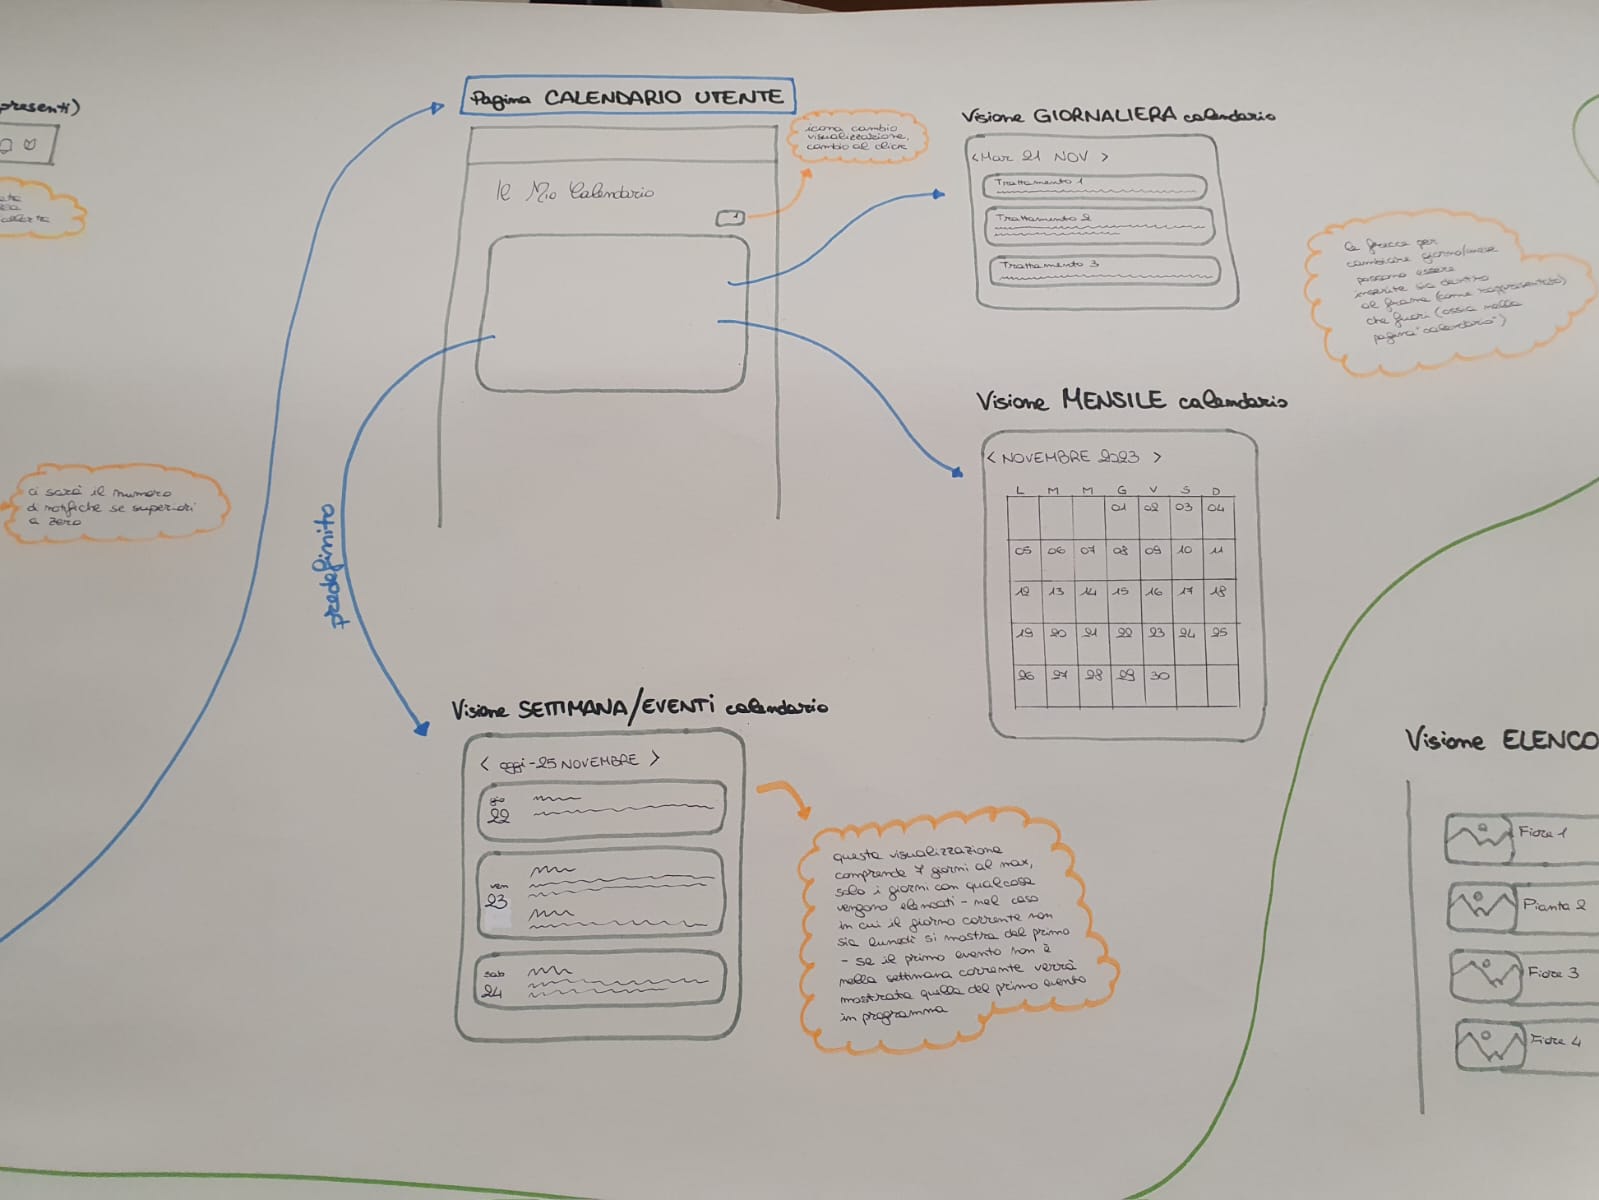 presenti)
ci sarà il numero
di notifiche se superiori
a zero
Pagina CALENDARIO UTENTE
icona cambio
visualizzazione,
cambio al click
Il Mio Calendario
predefinito
Visione GIORNALIERA calendario
<Mar 21 NOV >
Trattamento 1
Trattamento 2
Trattamento 3
le frecce per
cambiare giorno/mese
possono essere
inserite sia dentro
al frame (come rappresentato)
che fuori (ossia nella
pagina "calendario")
Visione MENSILE calendario
< NOVEMBRE 2023 >
L M M G V S D
01 02 03 04
05 06 07 08 09 10 11
12 13 14 15 16 17 18
19 20 21 22 23 24 25
26 27 28 29 30
Visione SETTIMANA/EVENTI calendario
< oggi-25 NOVEMBRE >
gio
22
ven
23
sab
24
questa visualizzazione
comprende 7 giorni al max,
solo i giorni con qualcosa
vengono elencati - nel caso
in cui il giorno corrente non
sia lunedì si mostra dal primo
- se il primo evento non è
nella settimana corrente verrà
mostrata quella del primo evento
in programma
Visione ELENCO
Fiore 1
Pianta 2
Fiore 3
Fiore 4